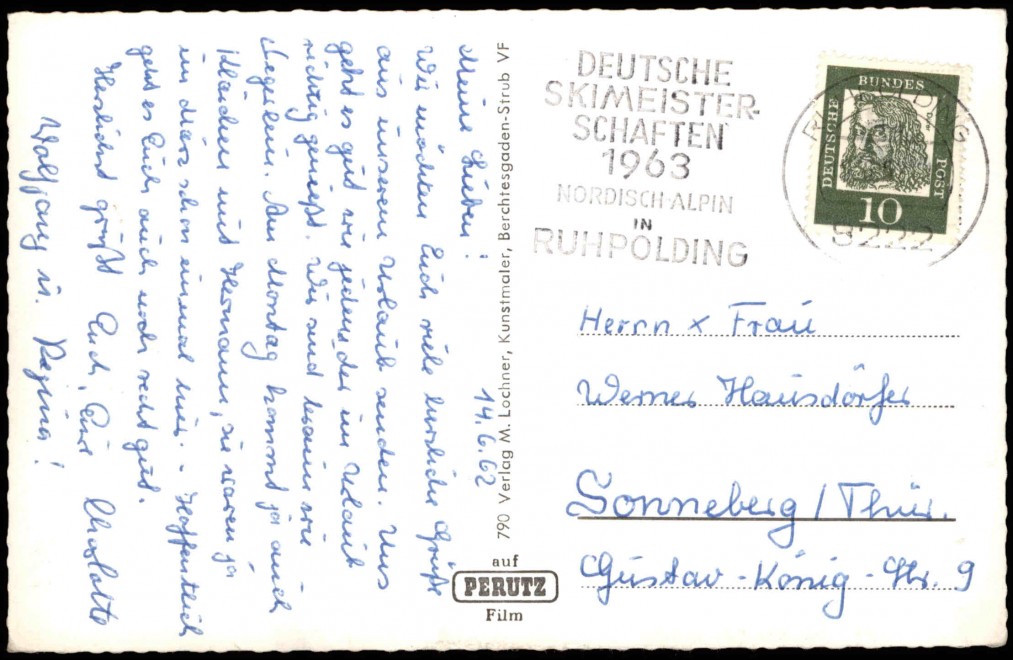 14.6.62
Meine Lieben!
Wir möchten Euch viele herzliche Grüße
aus unserem Urlaub senden. Uns
geht es gut wie jedem, der im Urlaub
richtig genießt. Wir sind braun wie
Am Montag kommt ja auch
und Hermann, sie waren ja
im März schon einmal hier. - Hoffentlich
geht es Euch auch noch recht gut.
Herzlichst grüßt Euch, Eure Charlotte
Wolfgang u. Regina!
790 Verlag M. Lochner, Kunstmaler, Berchtesgaden-Strub VF
auf
PERUTZ
Film
DEUTSCHE
SKIMEISTER-
SCHAFTEN
1963
NORDISCH-ALPIN
IN
RUHPOLDING
RUHPOLDING
8222
DEUTSCHE
BUNDES
POST
10
Herrn x Frau
Werner Hausdörfer
Sonneberg / Thür.
Gustav-König-Str. 9